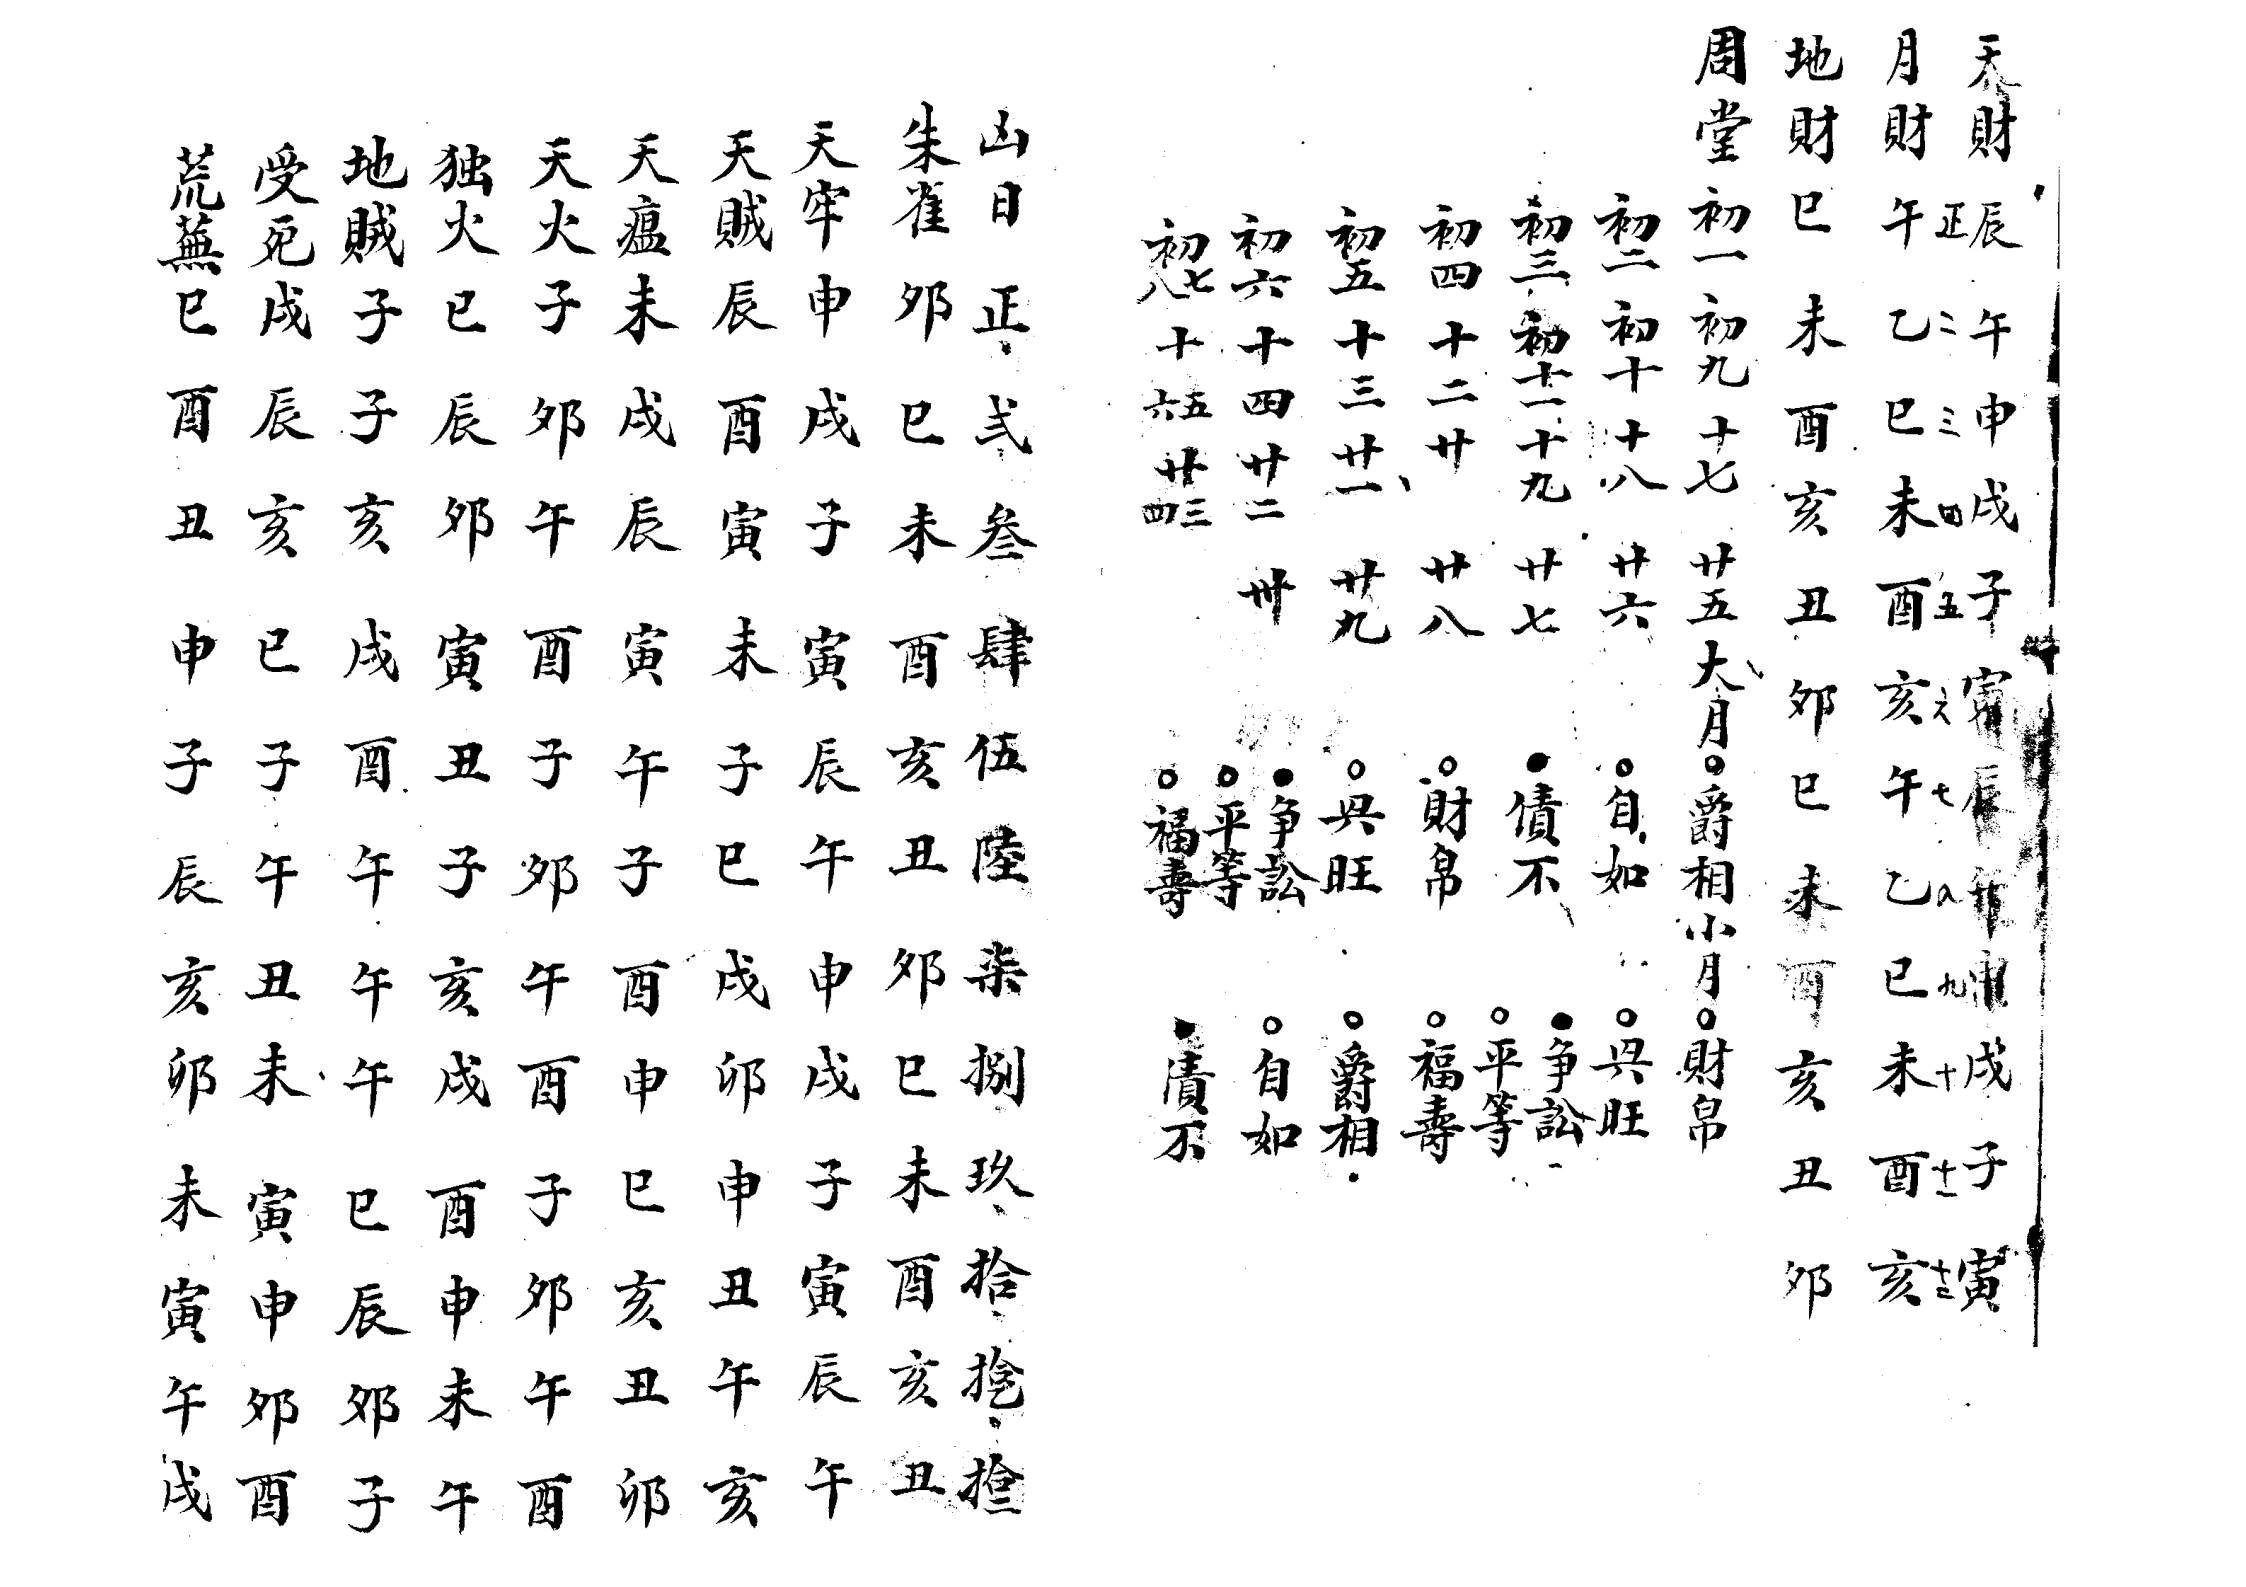 天財辰午申戌子寅辰午申戌子寅
正二三四五六七八九十十一十二
月財午乙巳未酉亥午乙巳未酉亥
地財巳未酉亥丑卯巳未酉亥丑卯
周堂初一初九十七廿五大月爵相小月財帛
初二初十十八廿六自如兴旺
初三初十一十九廿七債不争訟平等
初四十二廿廿八財帛福壽
初五十三廿一廿九兴旺爵相
初六十四廿二卅争訟平等自如
初七八十五六廿三四福壽債不
凶日正弍叁肆伍陸柒捌玖拾
朱雀卯巳未酉亥丑卯巳未酉亥丑
天牢申戌子寅辰午申戌子寅辰午
天賊辰酉寅未子巳戌卯申丑午亥
天瘟未戌辰寅午子酉申巳亥丑卯
天火子卯午酉子卯午酉子卯午酉
独火巳辰卯寅丑子亥戌酉申未午
地賊子子亥戌酉午午午巳辰卯子
受死戌辰亥巳子午丑未寅申卯酉
荒蕪巳酉丑申子辰亥卯未寅午戌